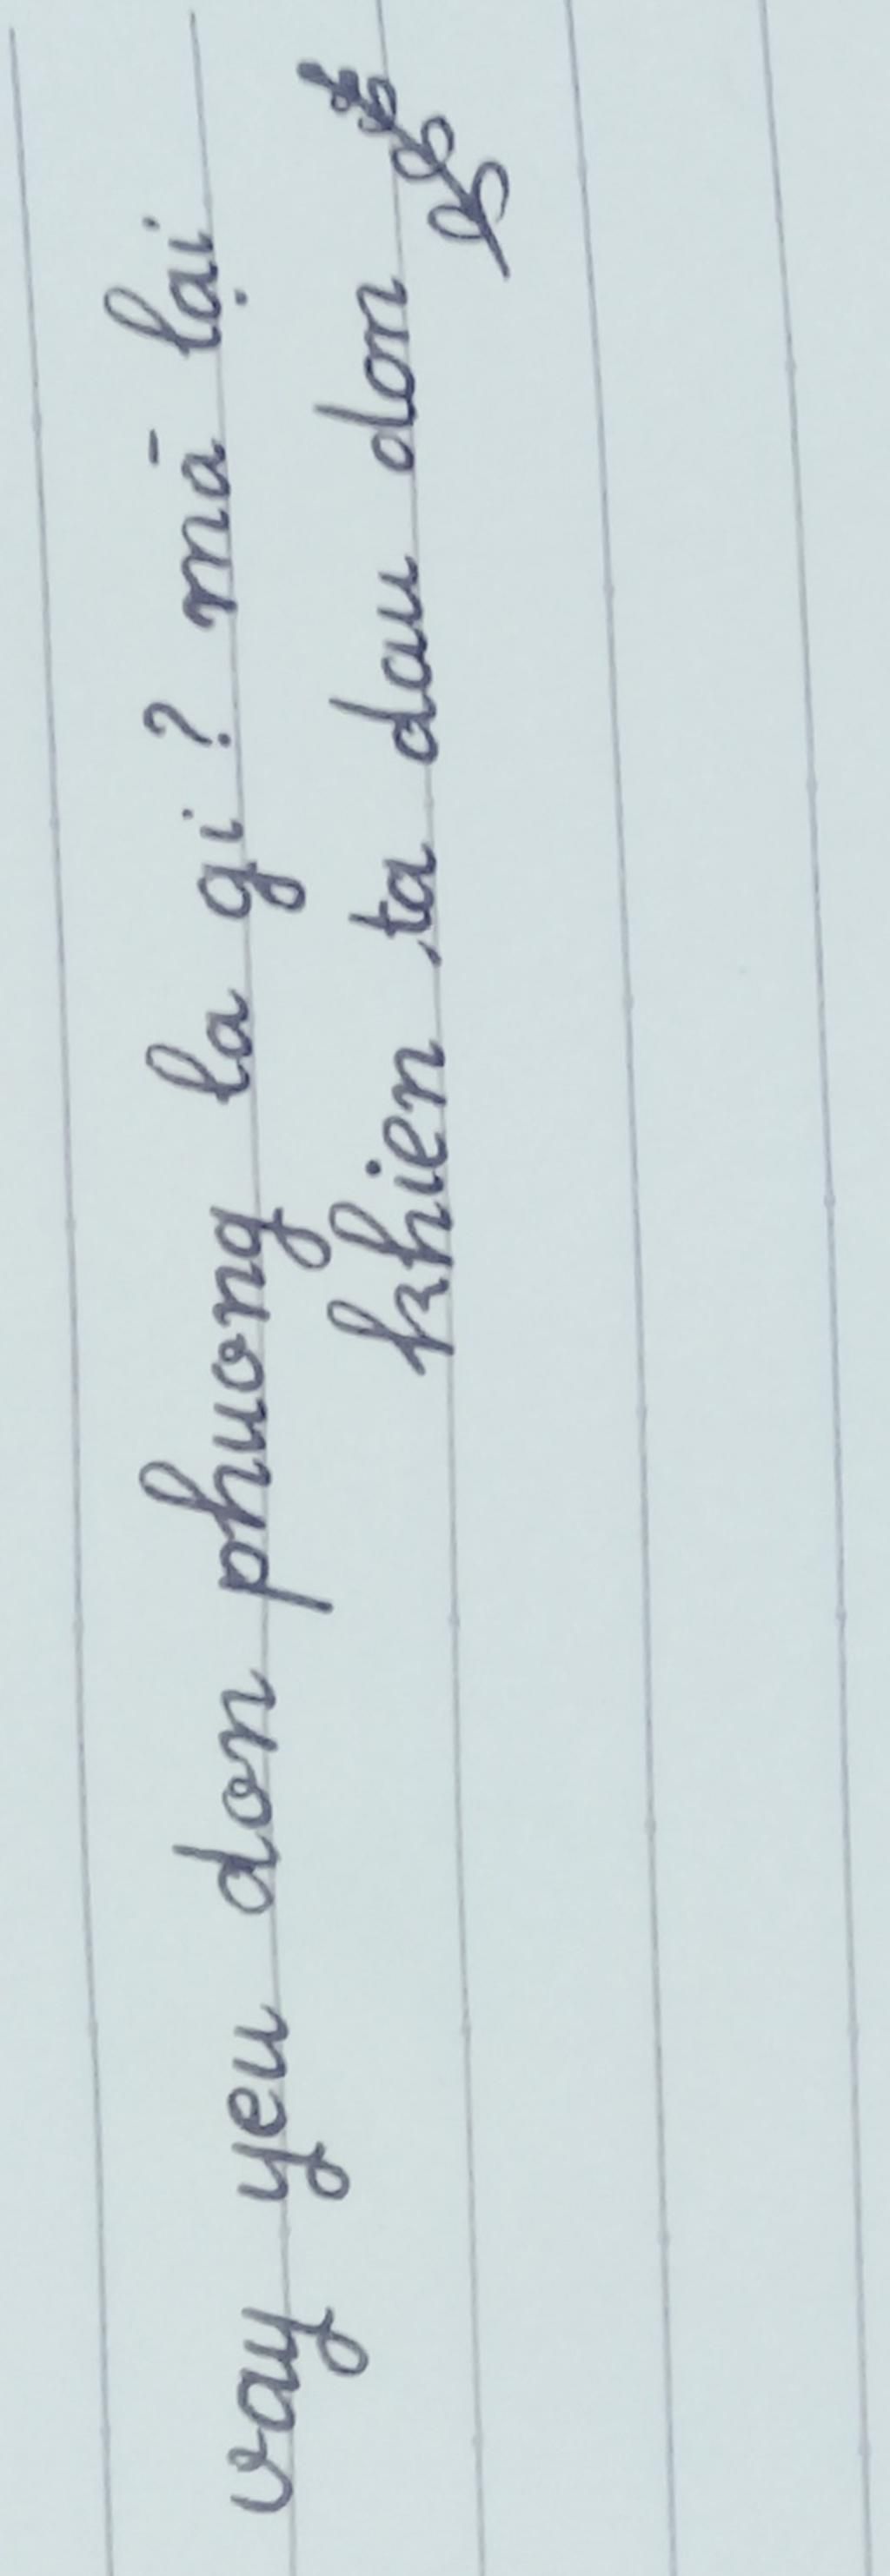 vay yeu don phuong la gi? mā lại
khien ta dau don